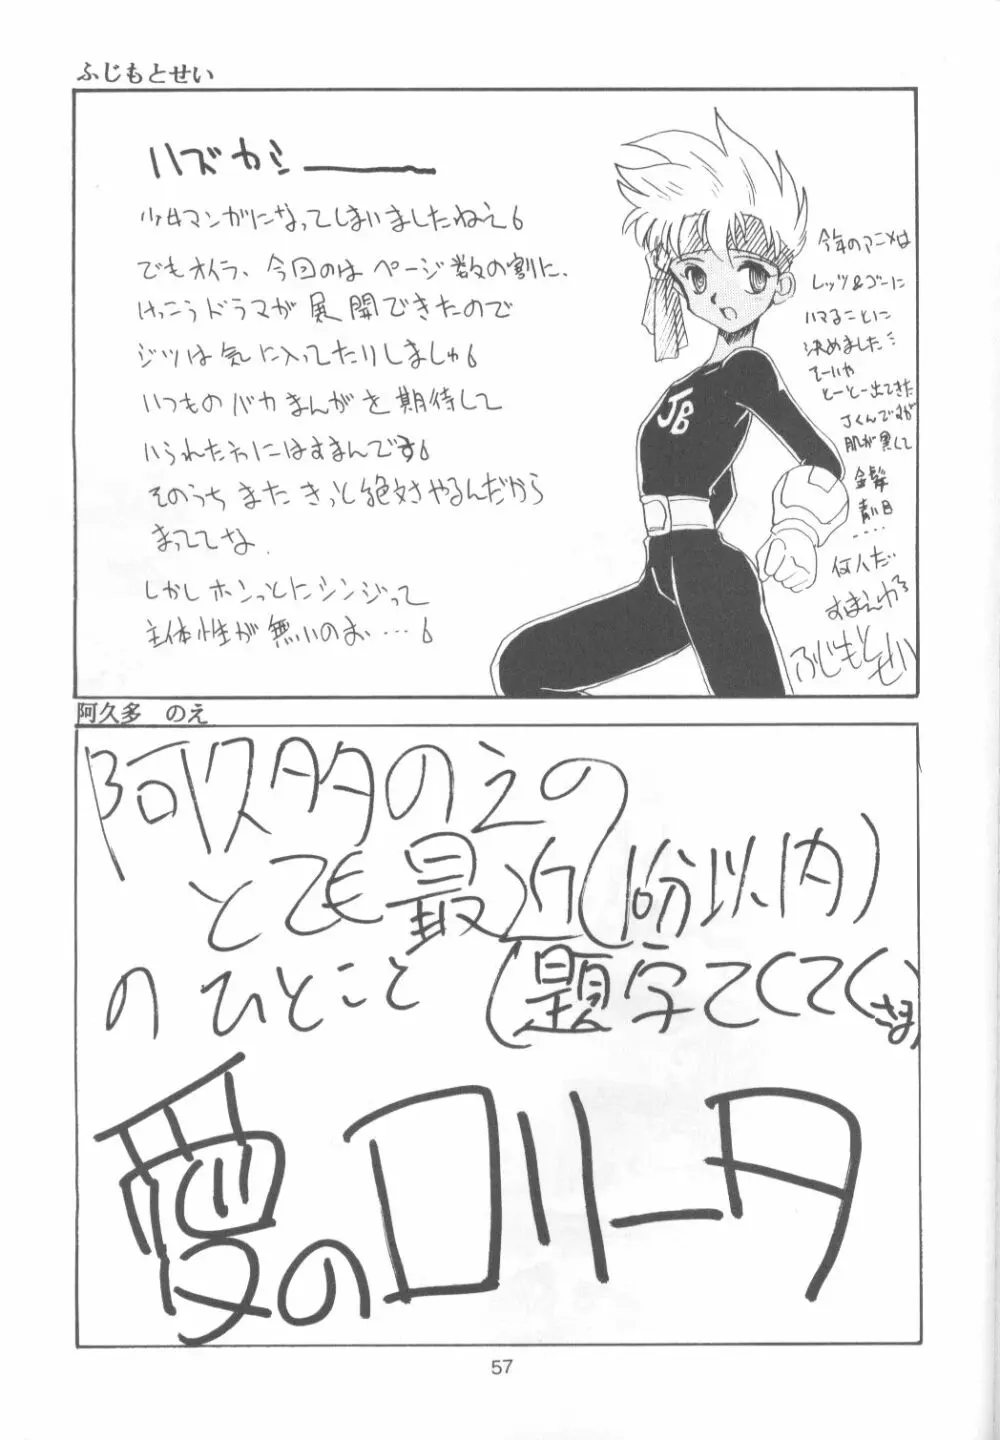 ふじもとせい
ハズカシ――
少女マンガになってしまいましたねえ
でもオイラ、今回のはページ数の割に、
けっこうドラマが展開できたので
ジツは気に入ってたりしましゅ
いつものバカまんがを期待して
いられた方にはすまんです
そのうちまたきっと絶対やるんだから
まっててな
しかしホンっとにシンジって
主体性が無いのお…
今年のアニメは
レッツ&ゴーに
ハマることに
決めました
そーいや
とーとー出てきた
Jくんですが
肌が黒くて
金髪
青い目
‥‥
何人だ
すまえわろ
ふじもとせい
JB
阿久多 のえ
阿久多のえの
とても最近(10分以内)
のひとこと(題字てくてくさま)
愛のロリータ
57